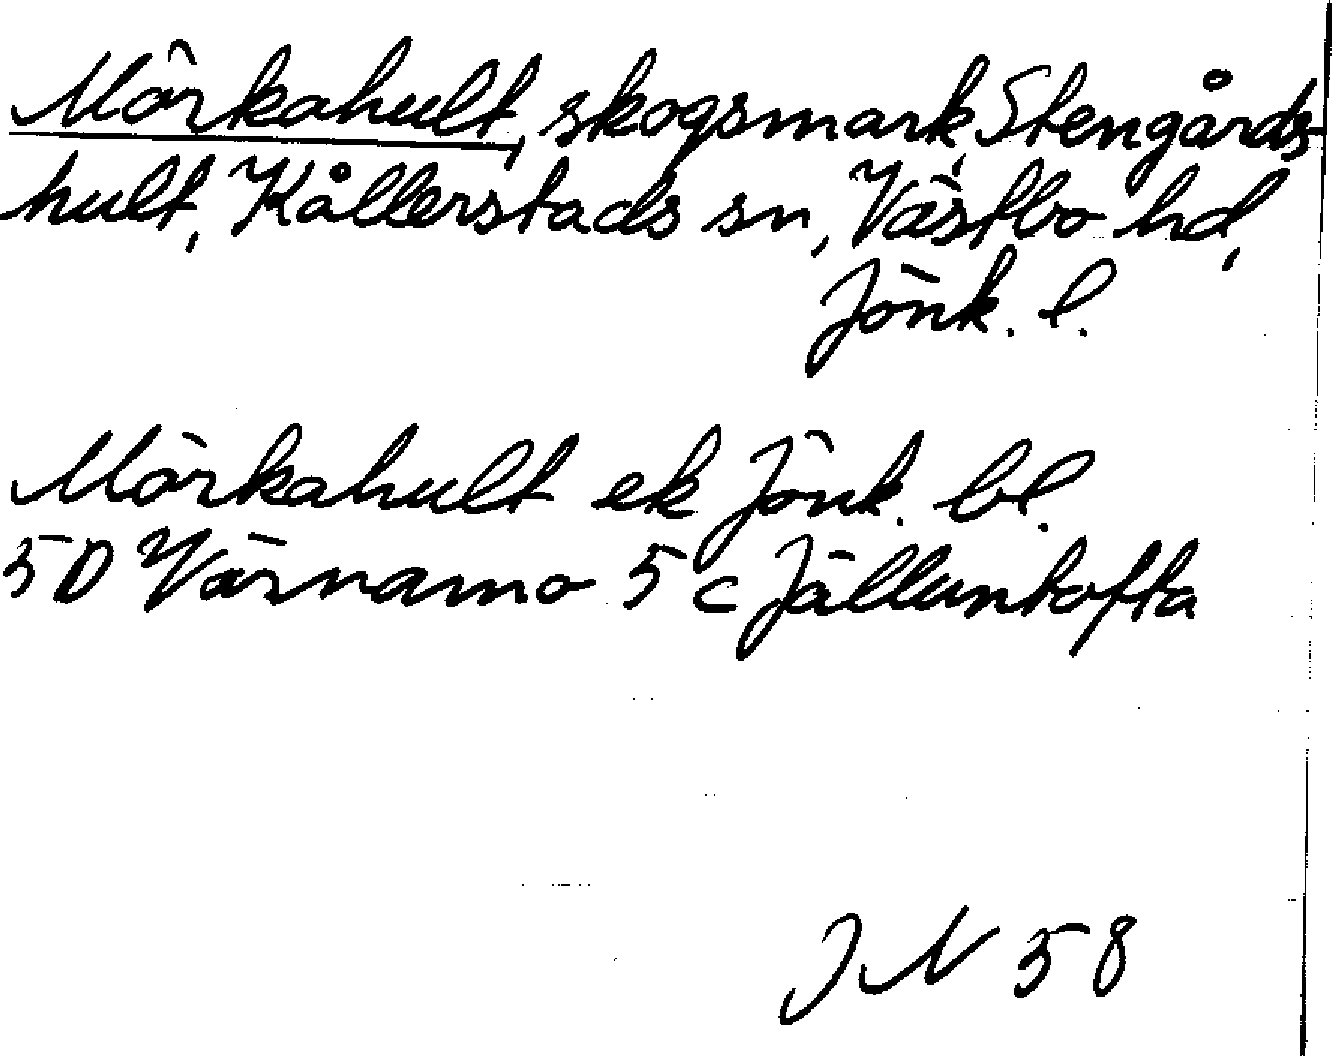 Mörkahult, skogsmark, Stengårds-
hult, Kållerstads sn, Västbo hd,
Jönk. l.
Mörkahult ek Jönk. bl.
5D Värnamo 5C Jälluntofta
JN 58